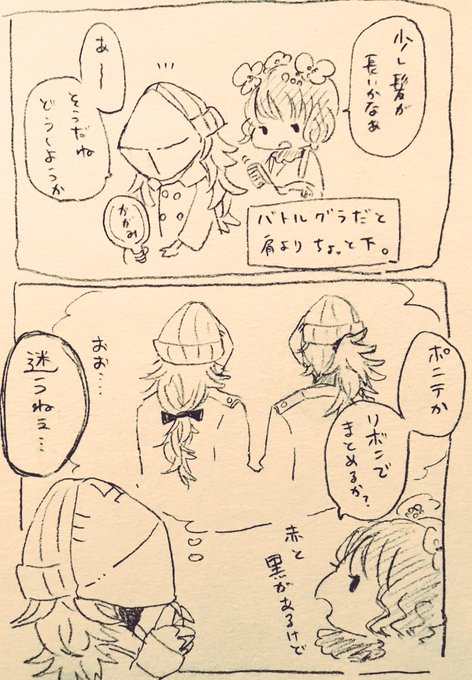 少し髪が
長いかなぁ
あー
そうだね
どうしようか
かがみ
バトルグラだと
肩よりちょっと下。
ポニテか
リボンで
まとめるか?
おお…
迷うねぇ…
赤と
黒があるけど